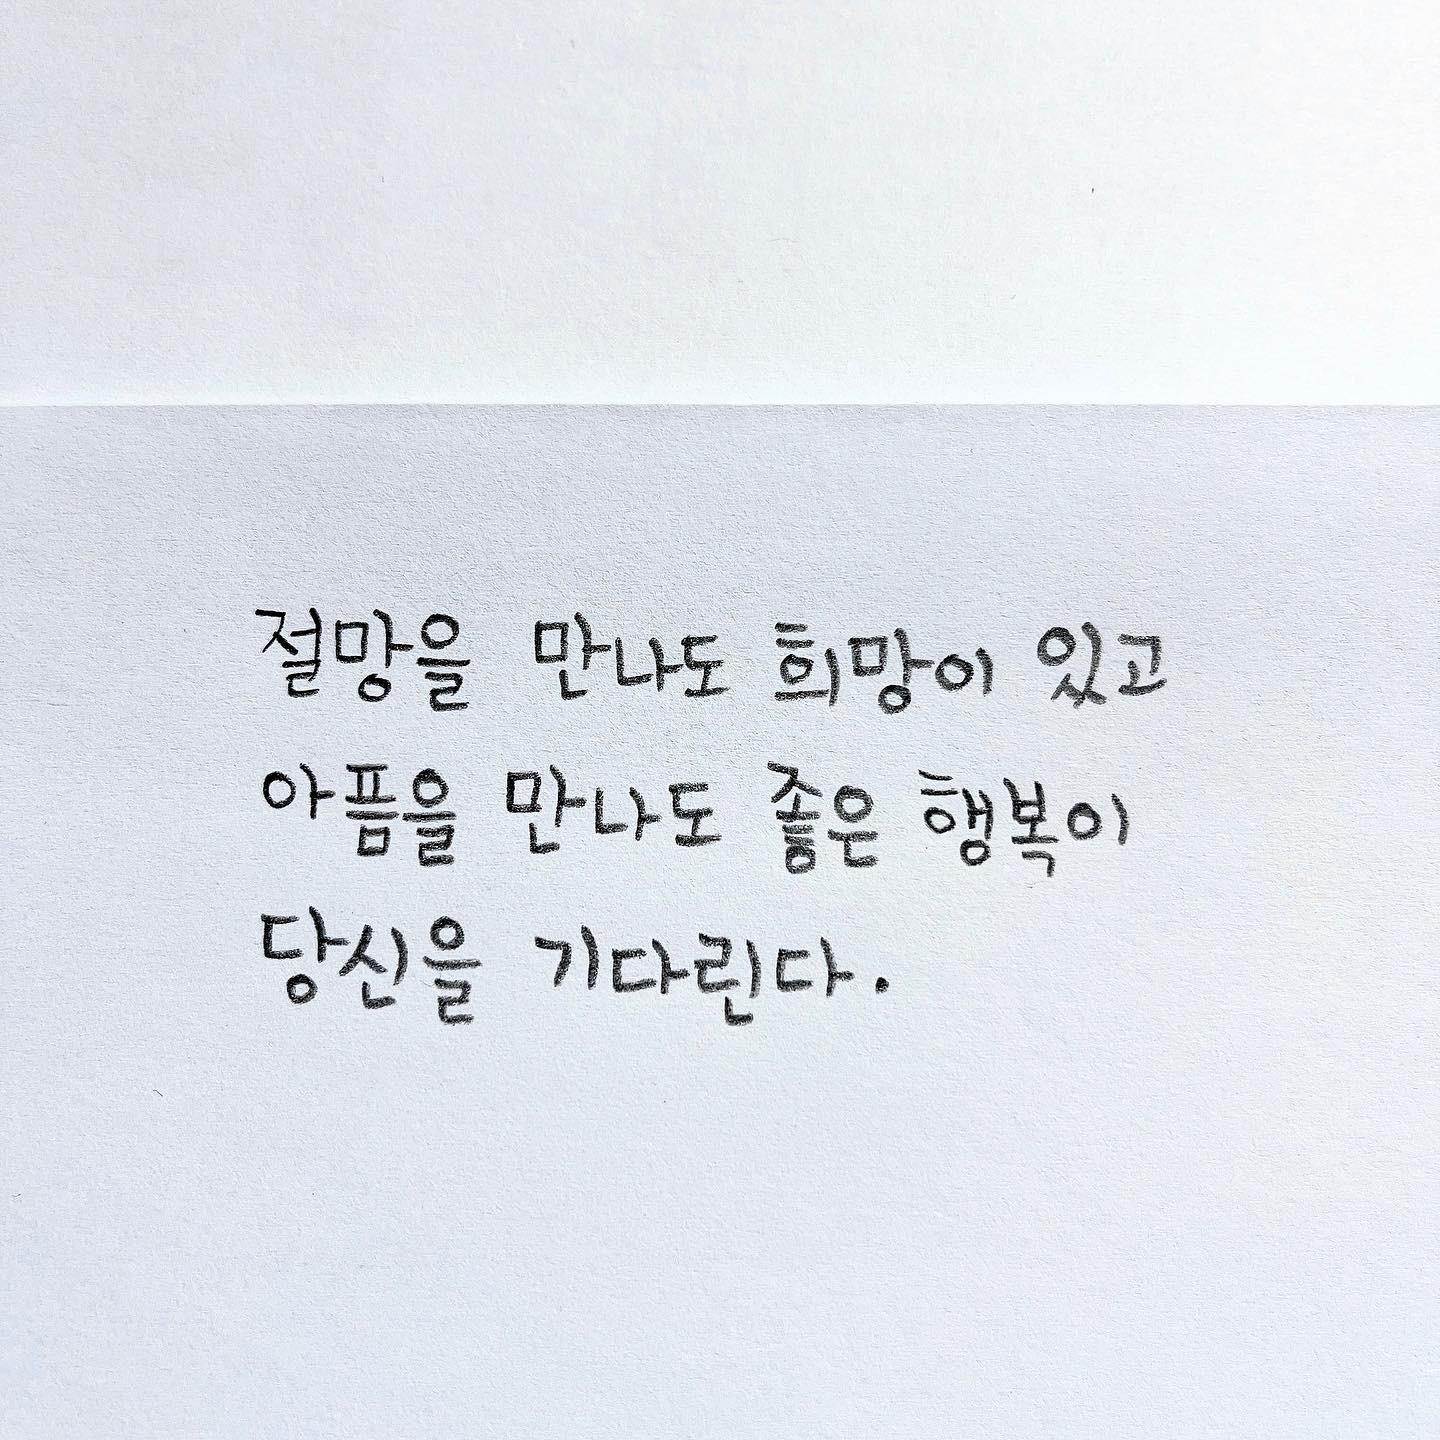 절망을 만나도 희망이 있고
아픔을 만나도 좋은 행복이
당신을 기다린다.